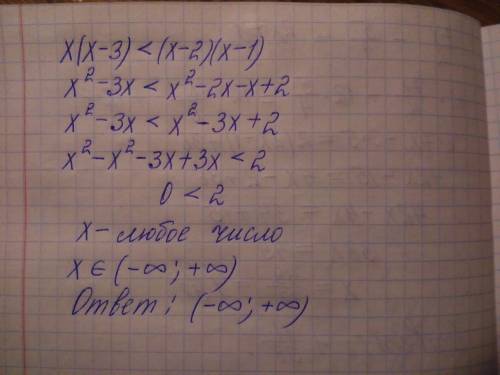 x(x-3) < (x-2)(x-1)
x²-3x < x²-2x-x+2
x²-3x < x²-3x+2
x²-x²-3x+3x < 2
0 < 2
x - любое число
x ∈ (-∞; +∞)
Ответ: (-∞; +∞)